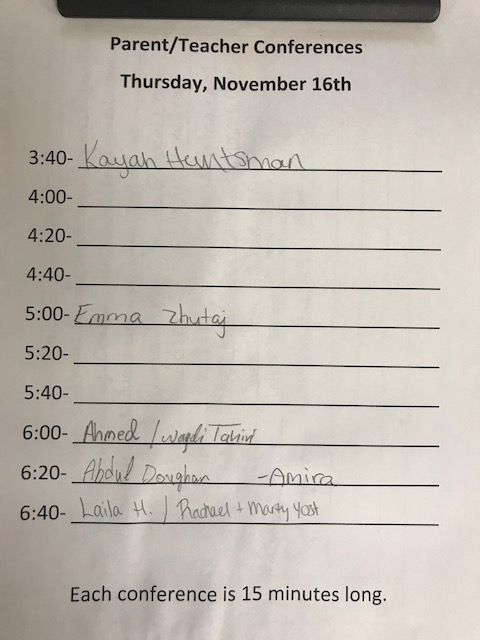 Parent/Teacher Conferences
Thursday, November 16th
3:40- Kayah Huntsman
4:00-
4:20-
4:40-
5:00- Emma Zhutaj
5:20-
5:40-
6:00- Ahmed / Wagdi
6:20- Abdul Doughan -Amira
6:40- Laila H. / Rachael + Marty Yost
Each conference is 15 minutes long.